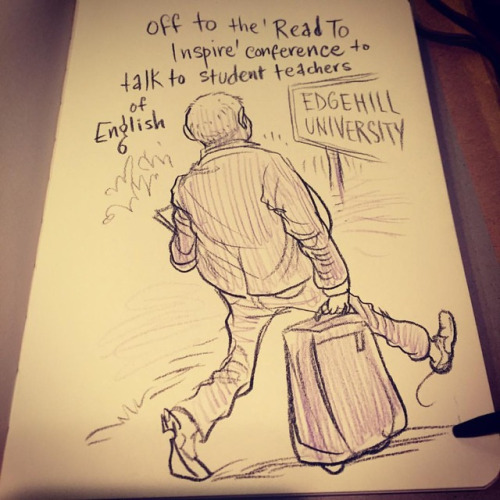 off to the 'Read To
Inspire' conference to
talk to student teachers
of
English
EDGEHILL
UNIVERSITY